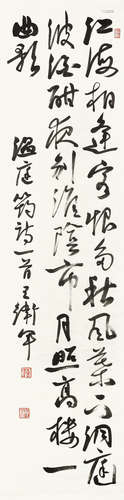 江海相逢客恨多秋風葉下洞庭
波酒酣夜别淮陰市月照高樓一
曲歌
温庭筠詩一首王衛軍